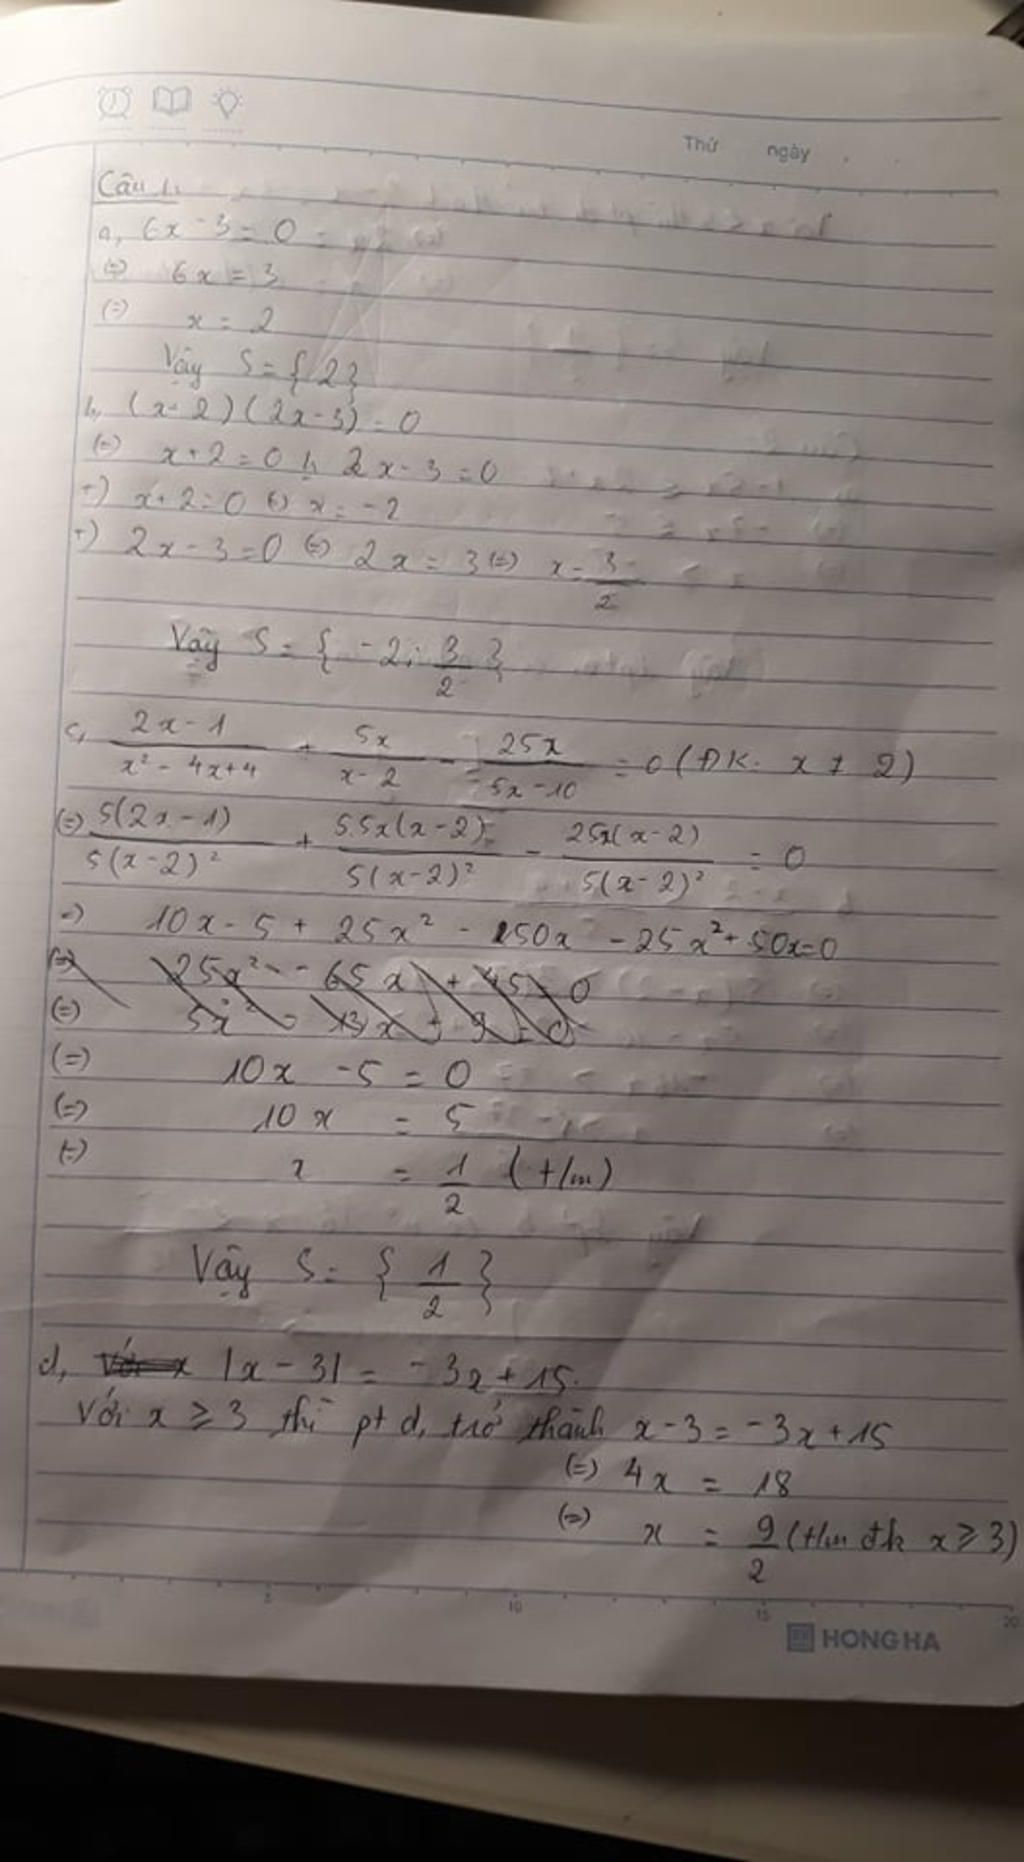 Thứ ngày
Câu 1.
a, 6x - 3 = 0
(=) 6x = 3
(=) x = 2
Vậy S = { 2 }
b, (x+2)(2x-3) = 0
(=) x+2 = 0 h 2x-3 = 0
+) x+2 = 0 (=) x = -2
+) 2x-3 = 0 (=) 2x = 3 (=) x = 3/2
Vậy S = { -2; 3/2 }
c, (2x-1)/(x² - 4x+4) + 5x/(x-2) - 25x/(5x-10) = 0 (ĐK. x ≠ 2)
(=) 5(2x-1)/5(x-2)² + 5.5x(x-2)/5(x-2)² - 25x(x-2)/5(x-2)² = 0
=) 10x - 5 + 25x² - 50x - 25x² + 50x = 0
(=) 25x² - 65x + 45 = 0
(=) 5x² - 13x + 9 = 0
(=) 10x - 5 = 0
(=) 10x = 5
(=) x = 1/2 (t/m)
Vậy S = { 1/2 }
d, Với x |x-3| = -3x+15.
Với x ≥ 3 thì pt d, trở thành x-3 = -3x+15
(=) 4x = 18
(=) x = 9/2 (t/m đk x ≥ 3)
5 10 15 20
HONG HA